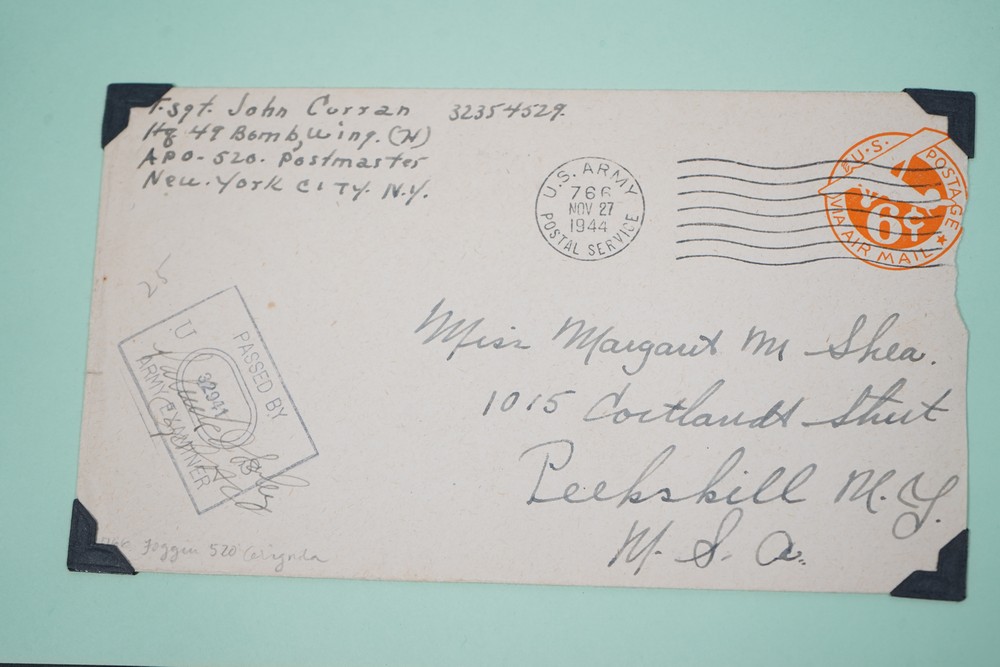 T.sgt. John Curran 32354529.
Hq 49 Bomb, Wing. (H)
APO- 520. Postmaster
New. York CITY. N.Y.
U.S. ARMY
766
NOV 27
1944
POSTAL SERVICE
U.S. POSTAGE
6¢
VIA AIR MAIL
PASSED BY
U
32941
ARMY EXAMINER
Miss Margaret M Shea.
1015 Cortlandt Street
Peekskill N.Y.
U. S. A.
Foggia 520 Cerignola